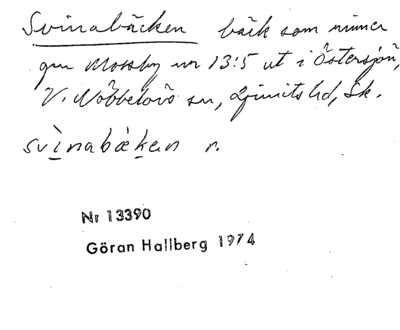 Svinabäcken bäck som rinner
gm Mossby nr 13:5 ut i Östersjön,
V. Nöbbelövs sn, Ljunits hd, Sk.
svìnabæken r.
Nr 13390
Göran Hallberg 1974